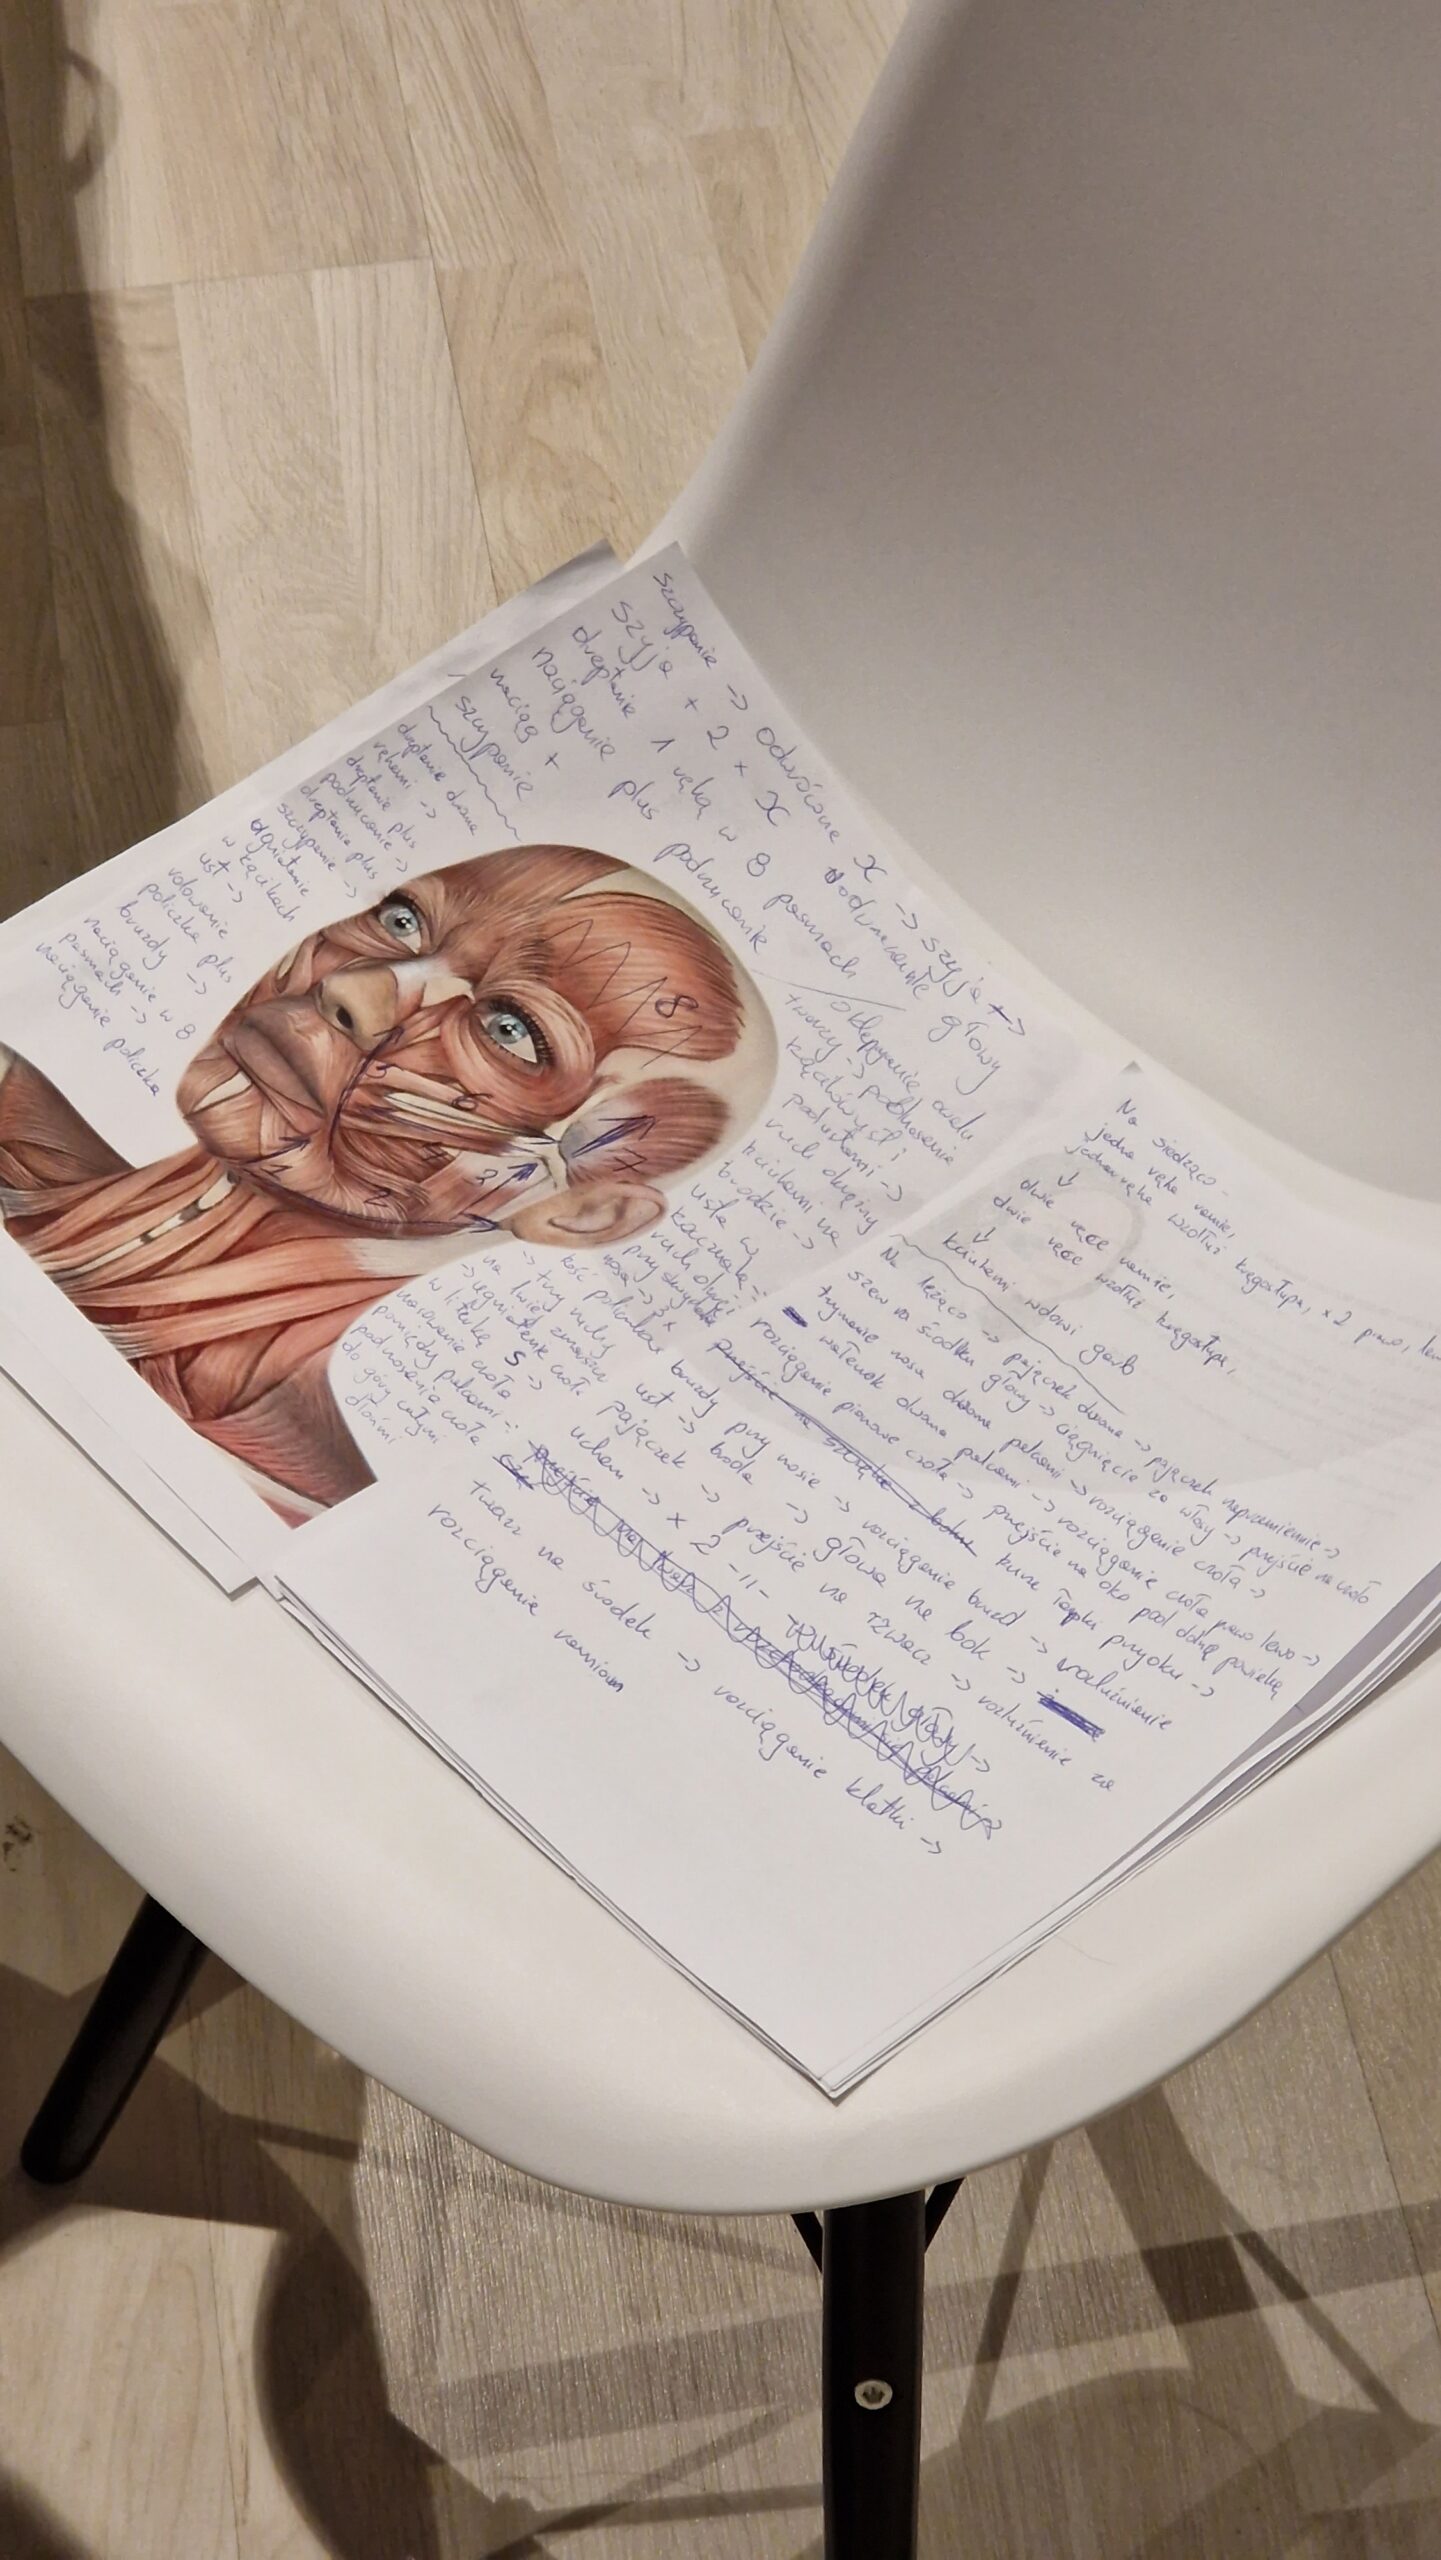 szczypanie -> odwrócone X -> szyja +->
szyja + 2 x X głowy
dreptanie 1 ręką w 8 pasmach
naciąganie plus podrzucanie
naciąg +
szczypanie
dreptanie dwoma
rękami ->
dreptanie plus
podrzucanie ->
dreptanie plus
szczypanie ->
ugniatanie
w kącikach
ust ->
rolowanie
policzka plus
bruzdy ->
naciąganie w 8
pasmach ->
naciąganie policzka
8
5
6
4
3
7
1
2
oklepywanie owalu
twarzy -> podnoszenie
kącików ust i
pod ustami ->
ruch okrężny
kciukami na
brodzie ->
usta w
kaczuszkę ->
ruch okrężny
przy skrzydełkach
nosa -> 3x
kość policzkowa
-> trzy ruchy
na lwią zmarszczkę
-> ugniatanie czoła
w literkę S ->
rolowanie czoła
pomiędzy palcami ->
podnoszenie czoła
do góry całymi
dłońmi
Na siedząco -
jedna ręka ramię,
jedna ręka wzdłuż kręgosłupa, x2 prawo,
↓
dwie ręce ramię,
dwie ręce wzdłuż kręgosłupa,
↓
kciukami wdowi garb
Na leżąco -> pajączek dwoma -> pajączek naprzemiennie ->
szew na środku głowy -> ciągnięcie za włosy -> przejście na czoło
trzymanie nosa dwoma palcami -> rozciąganie czoła ->
wałeczek dwoma palcami -> rozciąganie czoła prawo lewo ->
rozciąganie pionowe czoła -> przejście na oko pod dolną powieką
przejście na szczękę z boku kurze łapki przy oku ->
bruzdy przy nosie -> rozciąganie bruzd -> rozluźnienie
ust -> broda -> głowa na bok ->
pajączek -> przejście na żwacz -> rozluźnienie za
uchem -> x 2 -11-
twarz na środek -> rozciąganie klatki ->
rozciąganie ramion